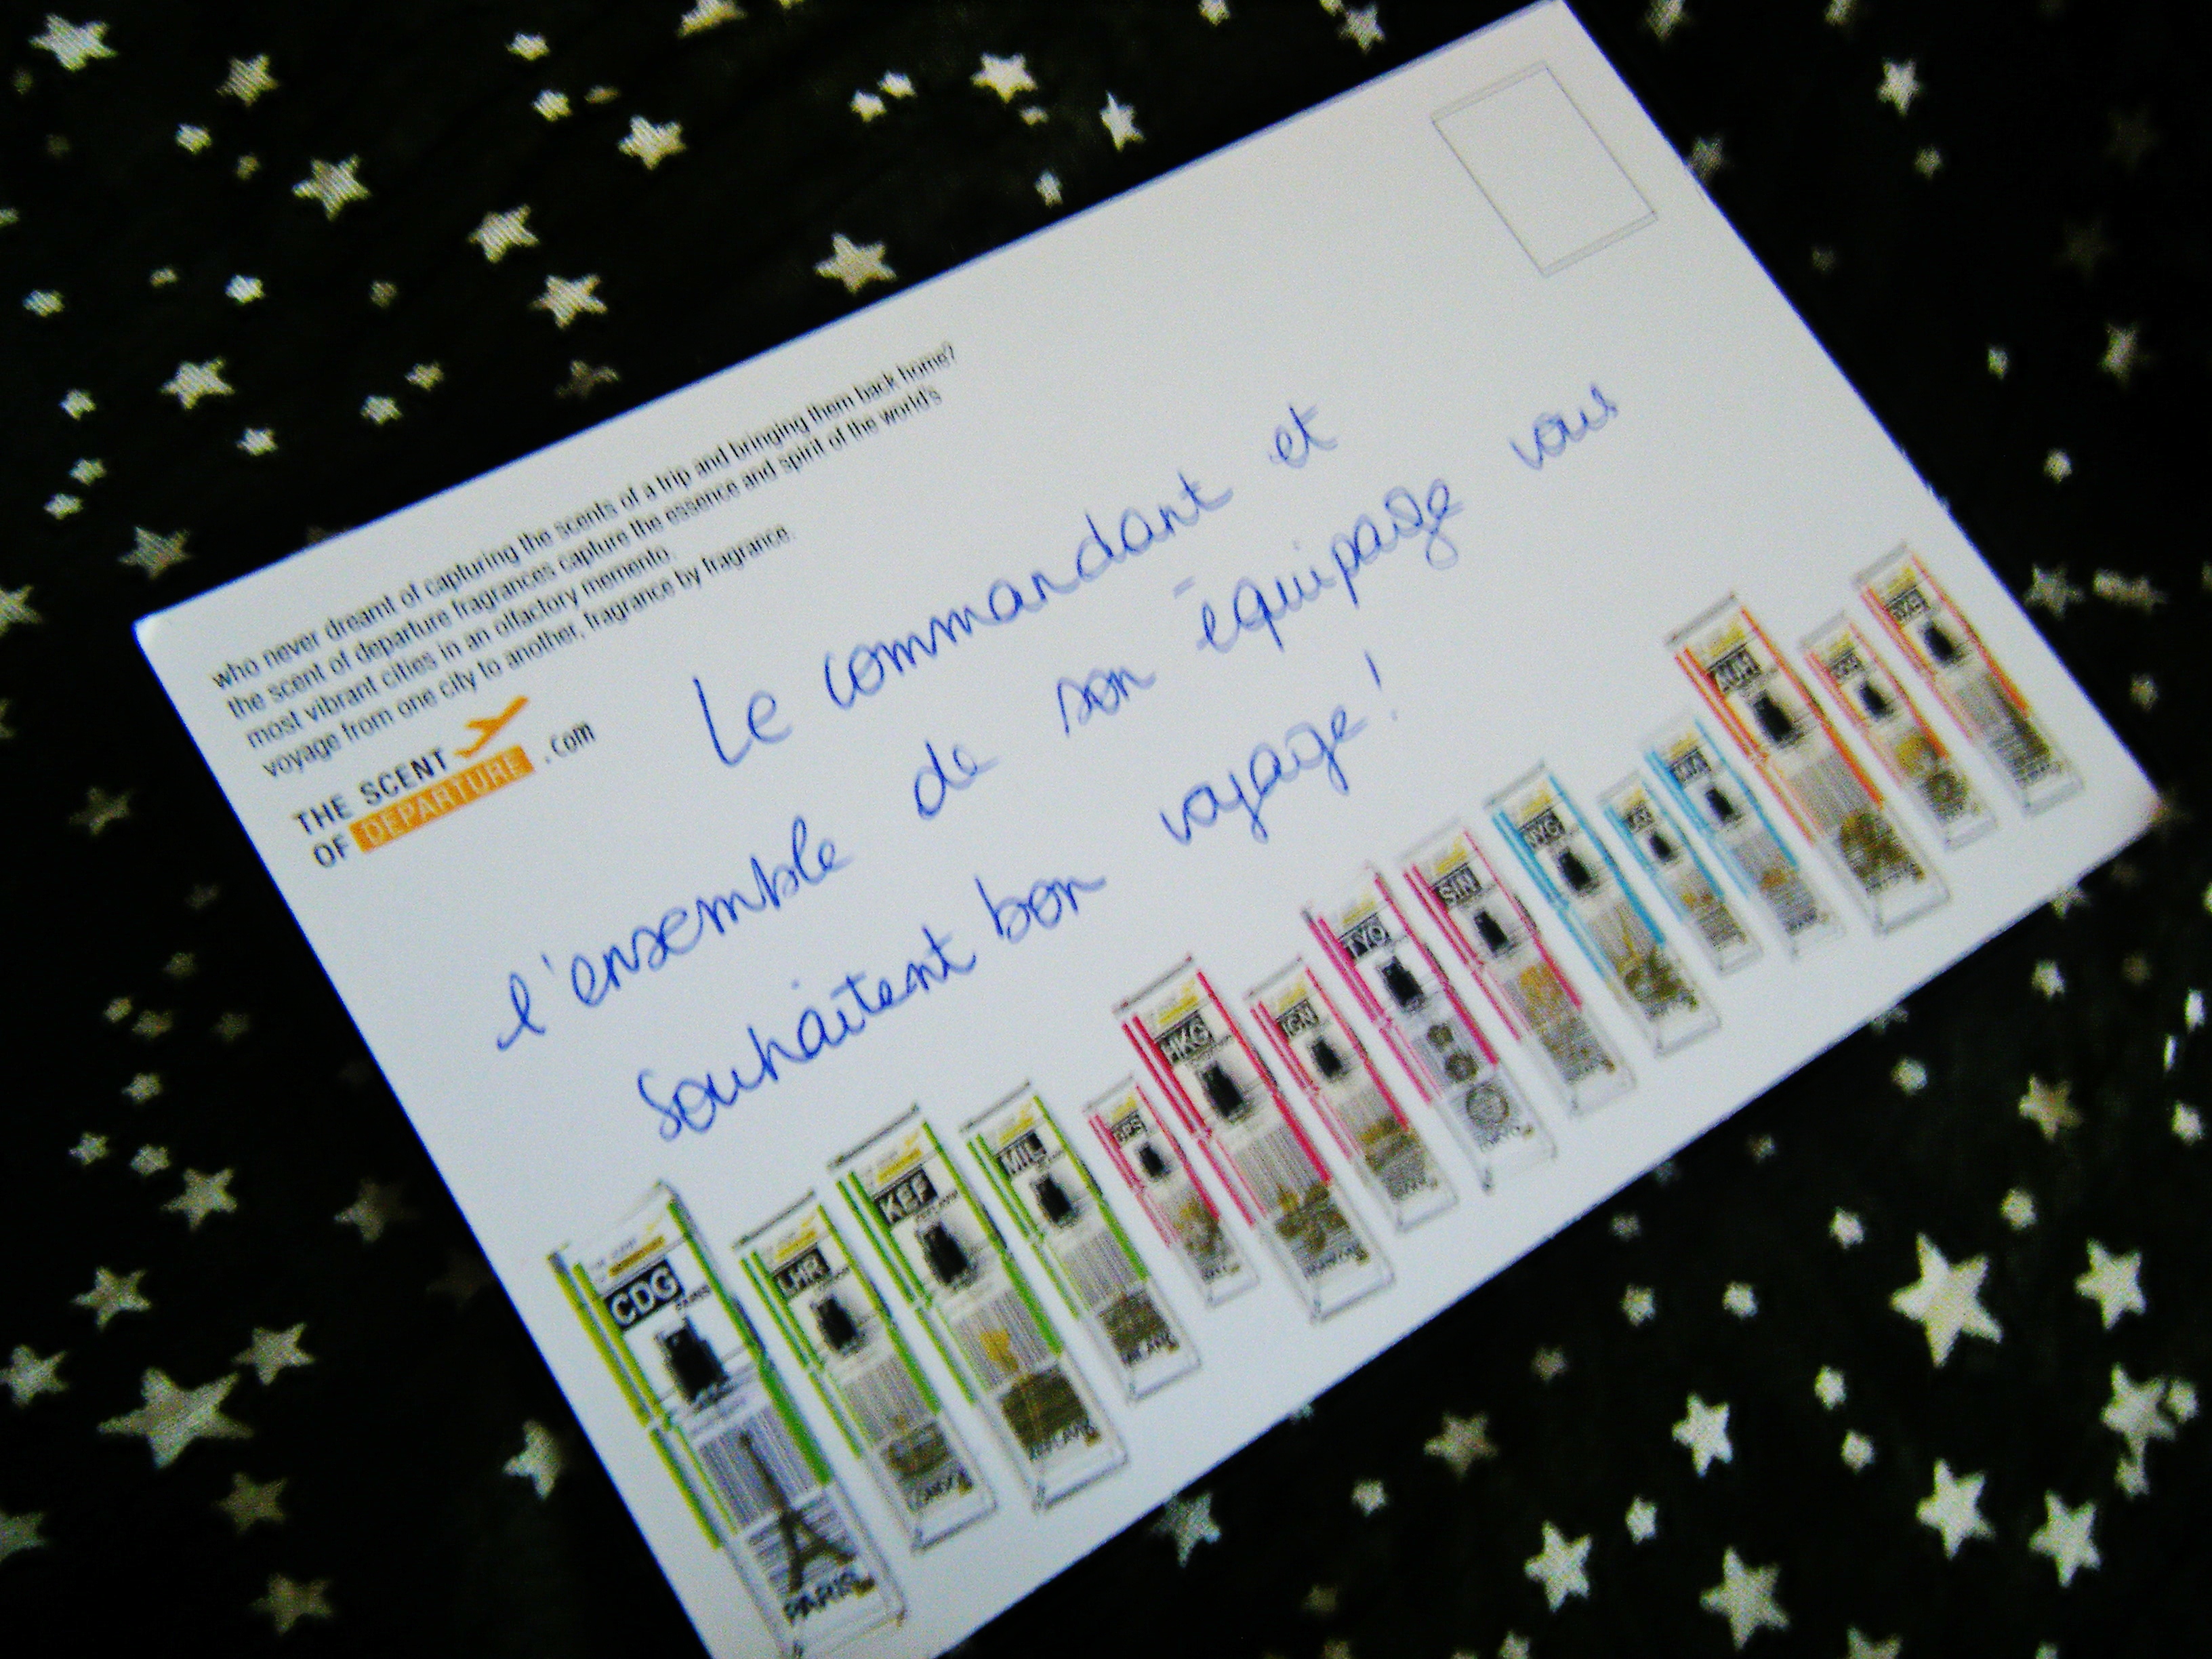 who never dreamt of capturing the scents of a trip and bringing them back home?
the scent of departure fragrances capture the essence and spirit of the world's
most vibrant cities in an olfactory memento.
voyage from one city to another, fragrance by fragrance.
THE SCENT
OF DEPARTURE .com
Le commandant et
l'ensemble de son équipage vous
souhaitent bon voyage!
CDG
PARIS
LHR
KEF
MIL
MILANO
DPS
HKG
ICN
TYO
TOKYO
SIN
NYC
LAX
MIA
AUH
DOH
DXB